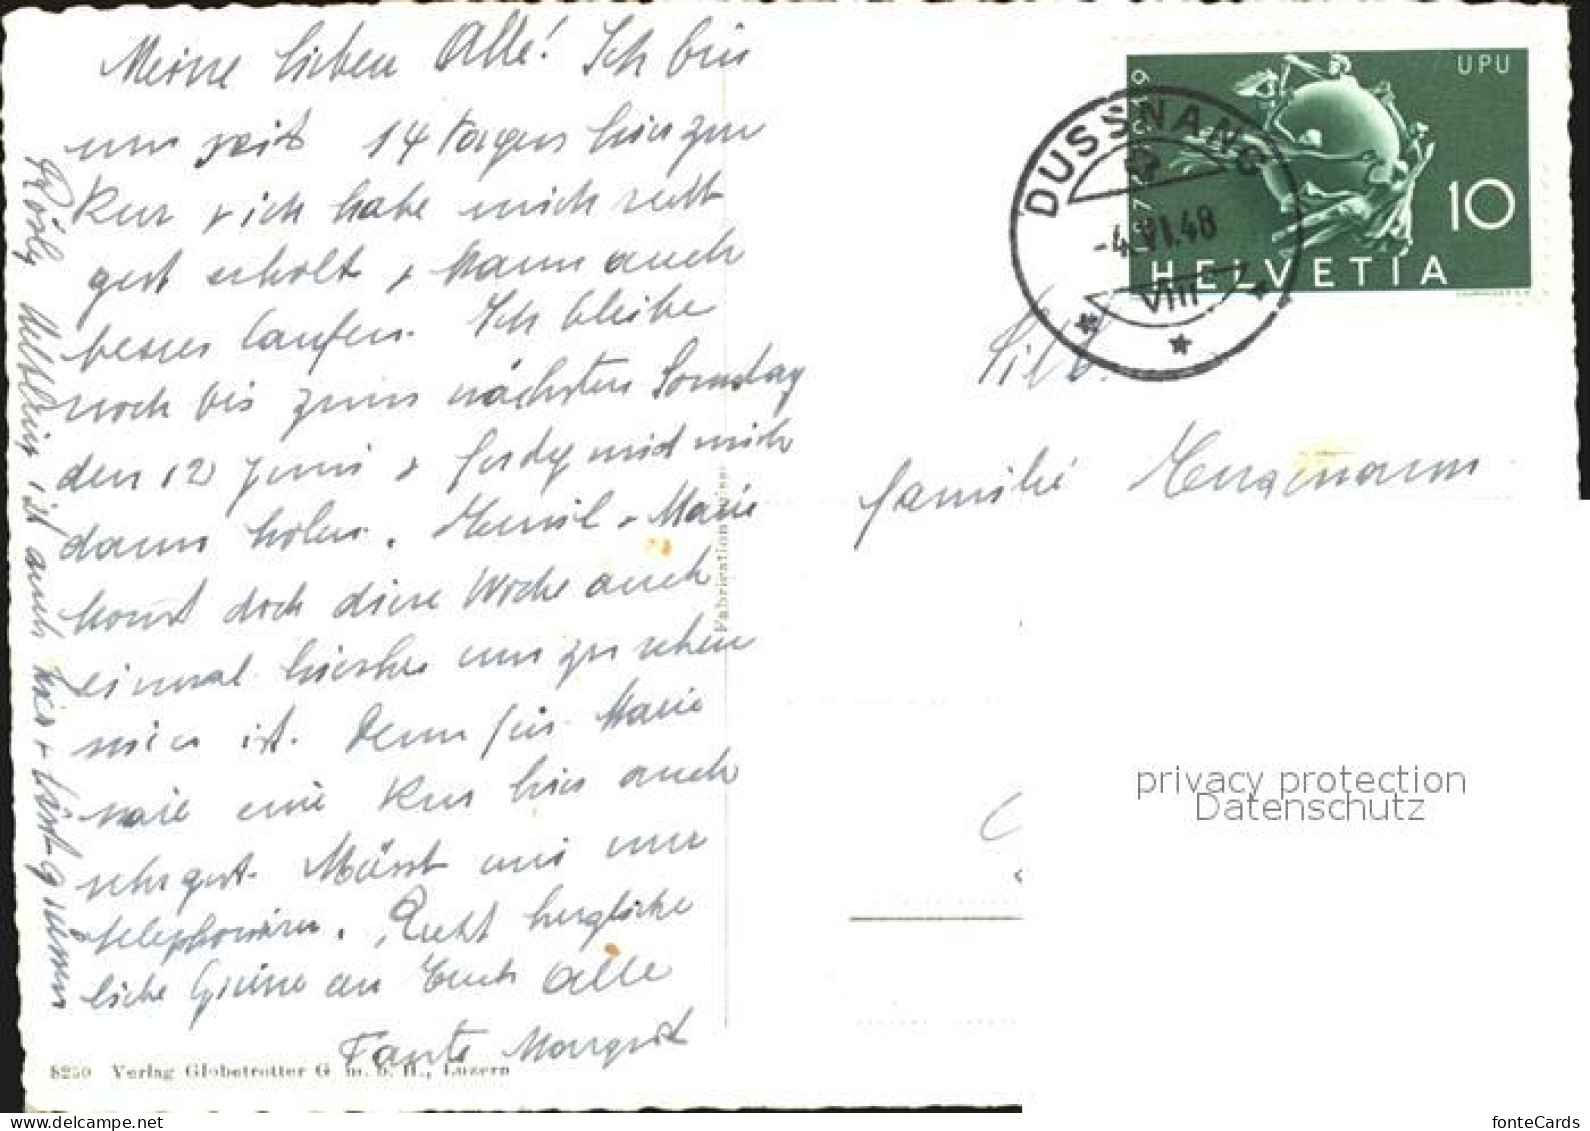 Meine lieben Alle! Ich bin
nun seit 14 Tagen hier zur
Kur + ich habe mich recht
gut erholt + kann auch
besser laufen. Ich bleibe
noch bis zum nächsten Sonntag
den 12 Juni + ferdy wird mich
dann holen. + Marie
komt doch diese Woche auch
einmal hierher um zu sehen
wie es ist. Denn für Marie
wäre eine Kur hier auch
sehr gut. Müsst mir nur
telephonieren. Recht herzliche
liche Grüsse an Euch alle
Tante Margrit
Rösly ist auch hier + lässt grüssen
8250 Verlag Globetrotter G. m. b. H., Luzern
Fabrication
DUSSNANG
-4.VI.48
VIII
UPU
10
HELVETIA
familie
privacy protection
Datenschutz
www.delcampe.net
fonteCards